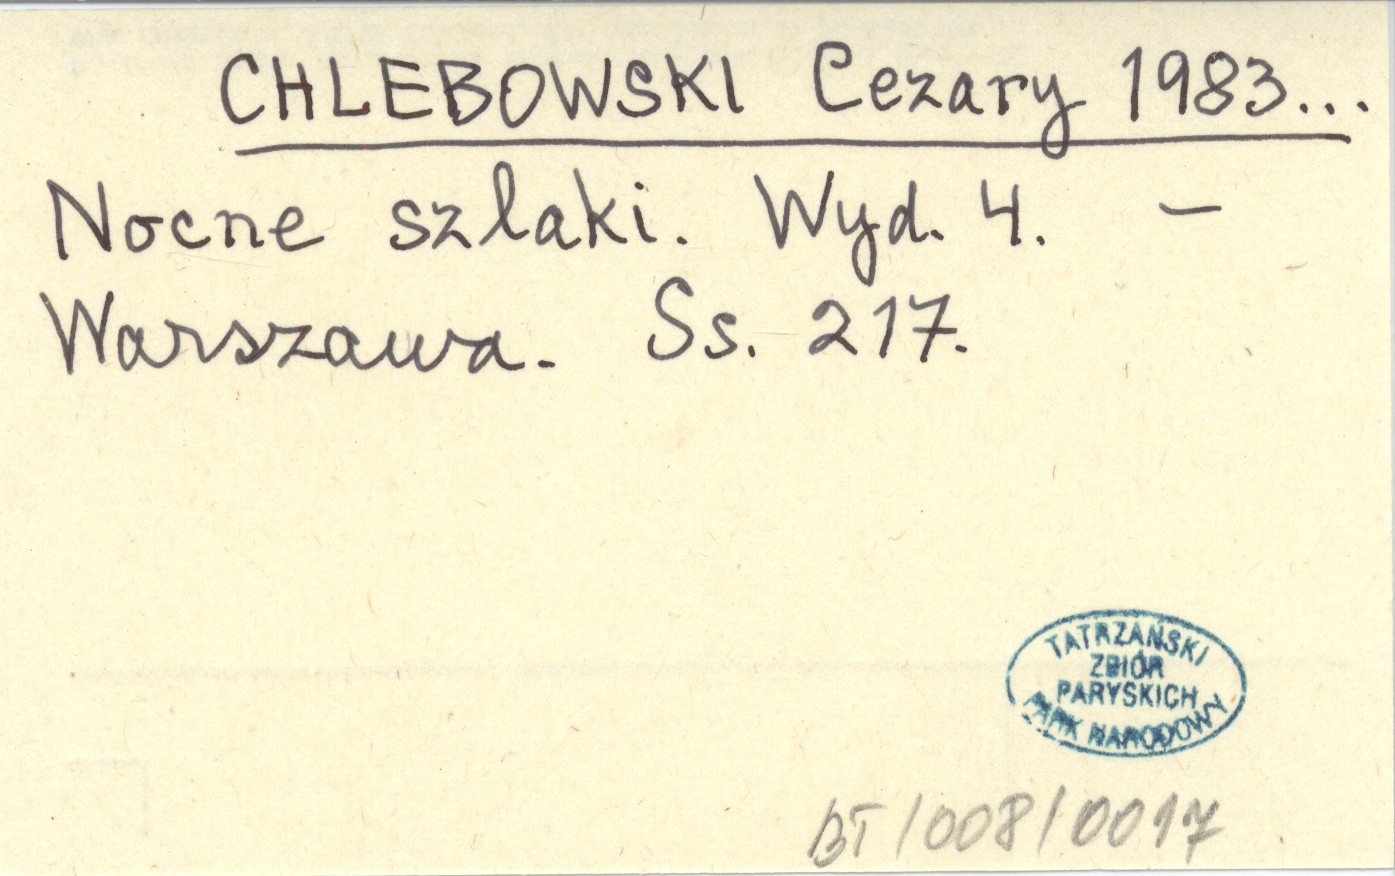 CHLEBOWSKI Cezary 1983...
Nocne szlaki. Wyd. 4. —
Warszawa. Ss. 217.
TATRZAŃSKI
ZBIÓR
PARYSKICH
PARK NARODOWY
BT/008/0017